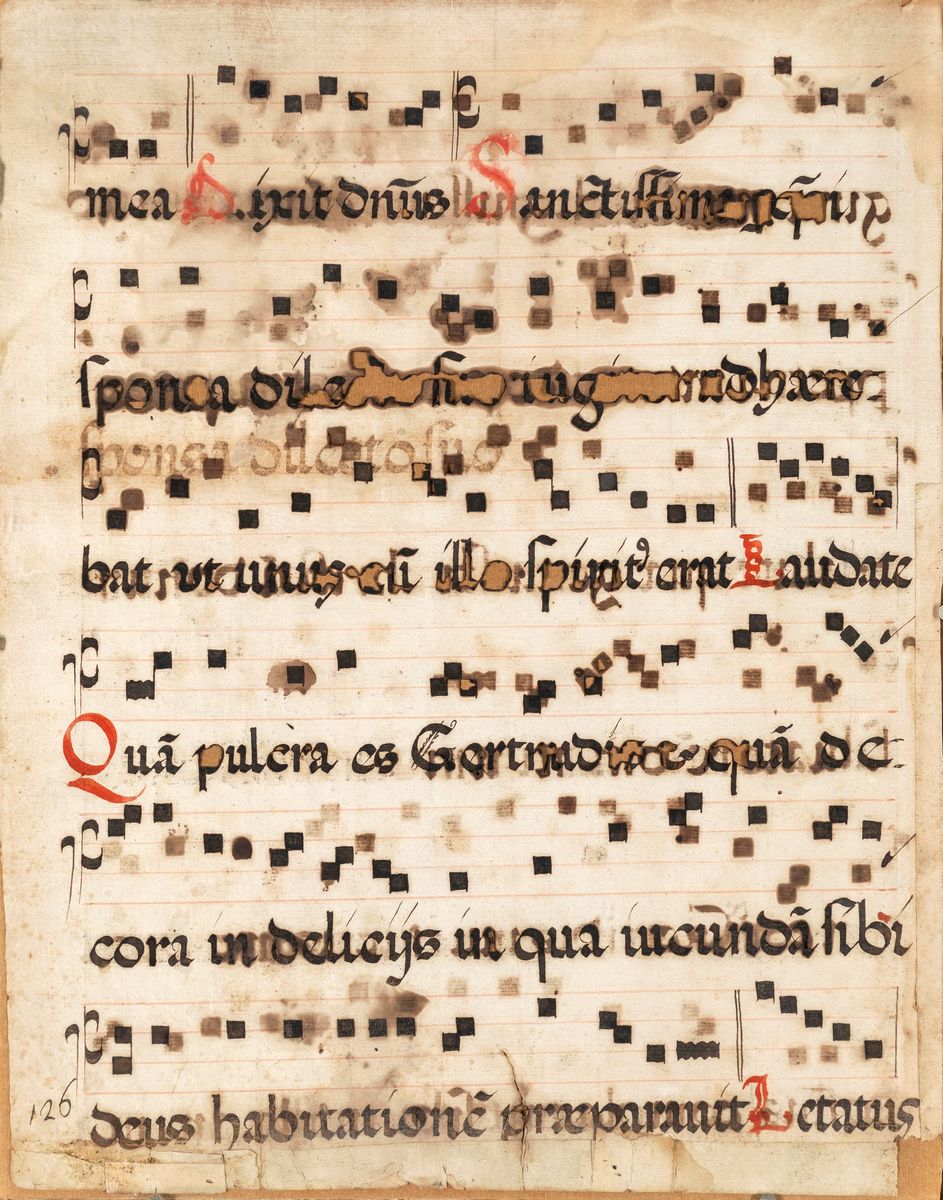 mea Dixit dñus Sanctissima
sponsa dile adhære-
bat ut unus cũ illo spirit⁹ erat Laudate
Quã pulcra es Gertrudis & quã de-
cora in delicijs in qua iucundã sibi
126
deus habitationẽ præparauit Letatus